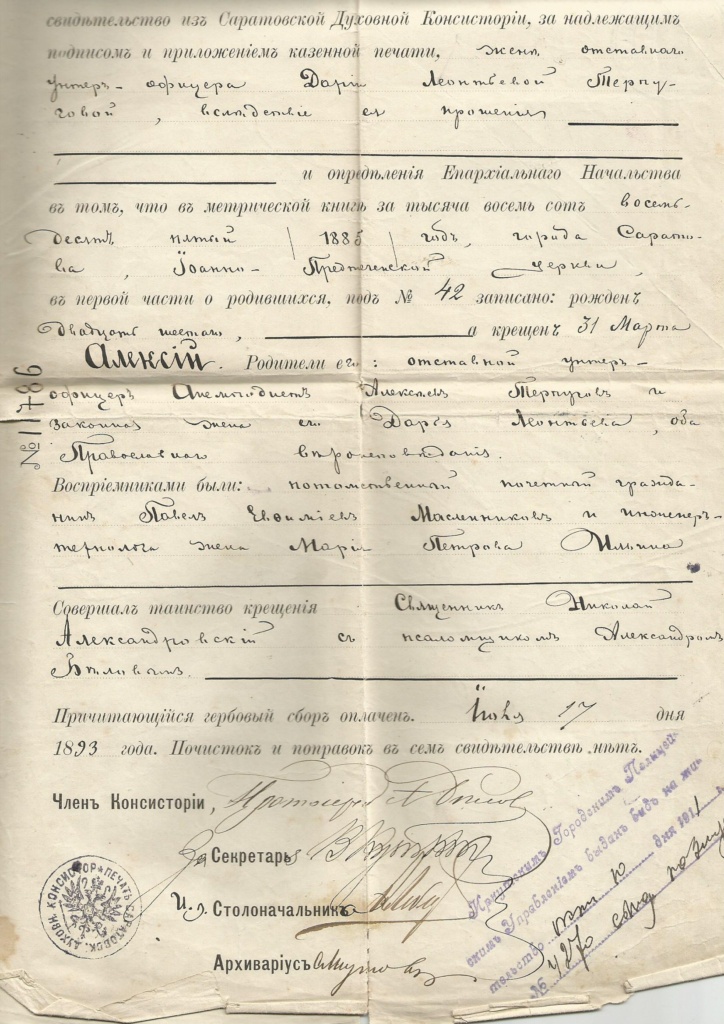 свидѣтельство изъ Саратовской Духовной Консисторіи, за надлежащимъ
подписомъ и приложеніемъ казенной печати, женѣ отставнаго
унтеръ-офицера Даріи Леонтьевой Терпу-
говой, вслѣдствіе ея прошенія
и опредѣленія Епархіальнаго Начальства
въ томъ, что въ метрической книгѣ за тысяча восемь сотъ восемь-
десятъ пятый /1885/ годъ, города Сарато-
ва, Іоанно-Предтеченской церкви,
въ первой части о родившихся, подъ № 42 записано: рожденъ
двадцать шестаго, а крещенъ 31 Марта
Алексій. Родители его: отставной унтеръ-
офицеръ Алексѣевъ Терпуговъ и
законная жена его Дарія Леонтьева, оба
Православнаго вѣроисповѣданія.
Воспріемниками были: потомственный почетный гражда-
нинъ Павелъ Евфиміевъ Масленниковъ и инженеръ-
технолога жена Марія Петрова Ильина
Совершалъ таинство крещенія Священникъ Николай
Александровскій съ псаломщикомъ Александромъ
Бѣловымъ.
Причитающійся гербовый сборъ оплаченъ. Іюня 17 дня
1893 года. Почистокъ и поправокъ въ семъ свидѣтельствѣ нѣтъ.
Членъ Консисторіи, Протоіерей
За Секретаря
И. д. Столоначальника
Архиваріусъ
№ 11786
ПЕЧАТЬ САРАТОВСК. ДУХОВН. КОНСИСТОР
Городскимъ Полицей-
скимъ Управленіемъ выданъ видъ на жи-
тельство дня 1911 г.
№ 4270